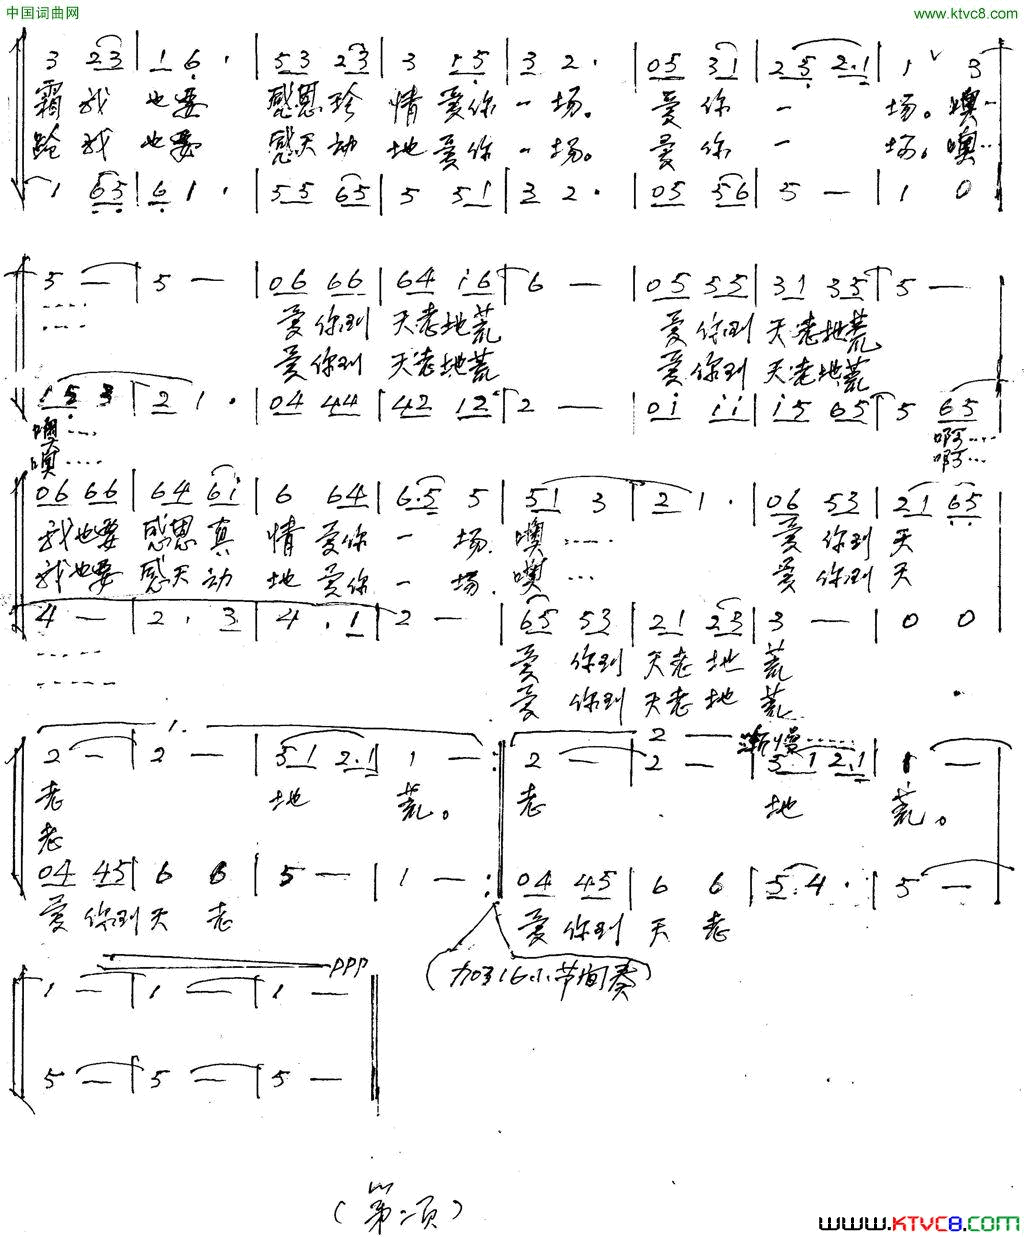 中国词曲网
www.ktvc8.com
3 23 | 1 6 · | 53 23 | 3 1·5 | 3 2 · | 05 31 | 25 2·1 | 1 ˅ 3
霜我 也要 感恩珍 情爱你 一 场。 爱 你 一 场。噢…
跄我 也要 感天动 地爱你 一 场。 爱 你 一 场。噢…
1 65 | 6 1 · | 55 65 | 5 51 | 3 2 · | 05 56 | 5 — | 1 0
5 — | 5 — | 06 66 | 64 i6 | 6 — | 05 55 | 31 35 | 5 —
爱你到 天老地荒 爱你到 天老地荒
爱你到 天老地荒 爱你到 天老地荒
1 5 3 | 2 1 · | 04 44 | 42 12 | 2 — | 0i ii | i5 65 | 5 65
噢…… 啊……
噢…… 啊…
06 66 | 64 6i | 6 64 | 6·5 5 | 51 3 | 2 1 · | 06 53 | 21 65
我也要 感恩真 情 爱你 一 场. 噢…… 爱 你到 天
我也要 感天动 地 爱你 一 场. 噢… 爱 你到 天
4 — | 2 · 3 | 4 · 1 | 2 — | 65 53 | 21 23 | 3 — | 0 0
爱 你到 天老 地 荒
爱 你到 天老 地 荒
1. 2 — 渐慢……
2 — | 2 — | 31 2·1 | 1 — :‖ 2 — | 2 — | 31 2·1 | 1 —
老 地 荒。 老 地 荒。
老
04 45 | 6 6 | 5 — | 1 — :‖ 04 45 | 6 6 | 5·4 · | 5 —
爱 你到 天 老 爱你到 天 老
(加316小节间奏)
ppp
1 — | 1 — | 1 — ‖
5 — | 5 — | 5 — ‖
(第二页)
www.KTVC8.com